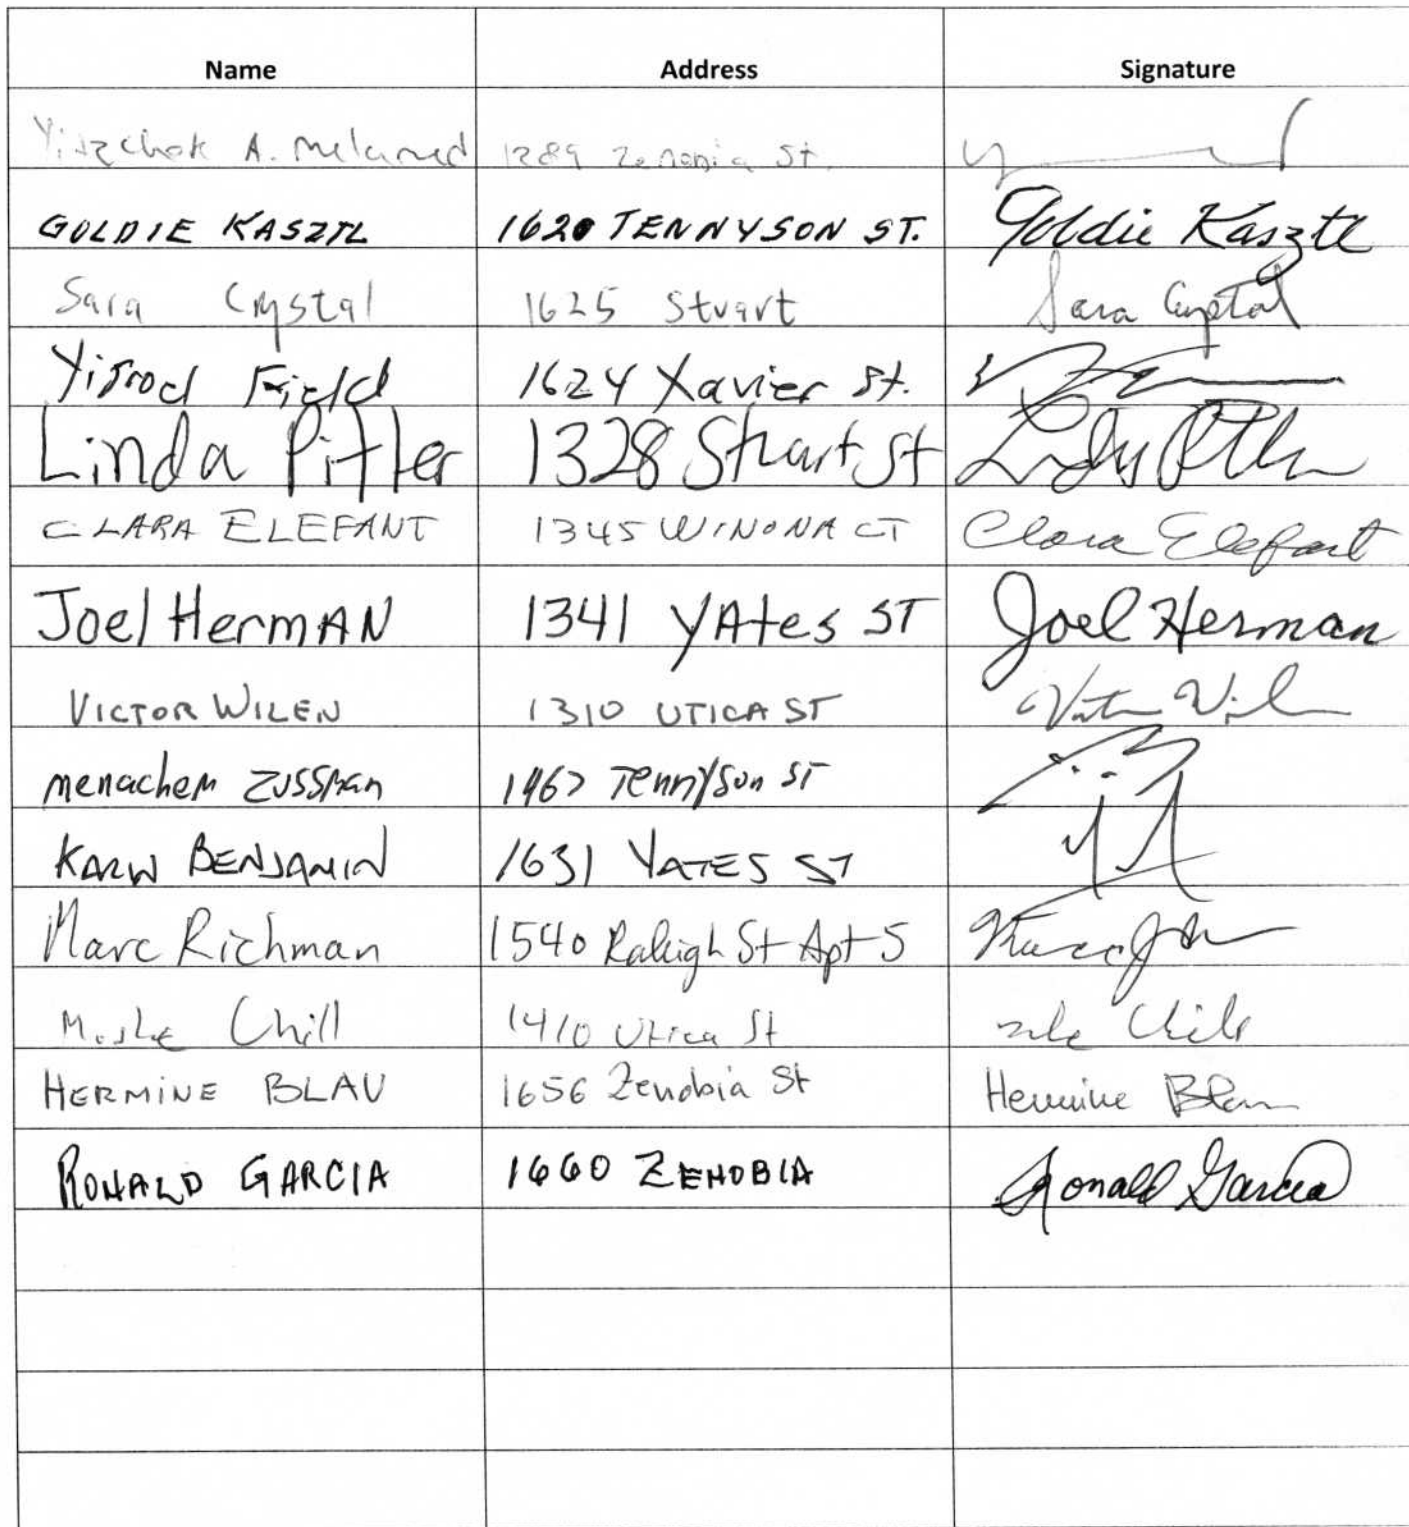 Name Address Signature
Yitzchok A. Melamed 1289 Zenobia St.
GOLDIE KASZTL 1620 TENNYSON ST. Goldie Kasztl
Sara Crystal 1625 Stuart Sara Crystal
Yisroel Field 1624 Xavier St.
Linda Pitler 1328 Stuart St
CLARA ELEFANT 1345 WINONA CT Clara Elefant
Joel HermAN 1341 YAtes ST Joel Herman
VICTOR WILEN 1310 UTICA ST
menachem ZUSSman Tennyson ST
BENJAMIN 1631 YATES ST
Marc Richman 1540 Raleigh St Apt 5
Moshe Chill 1410 Utica St Chill
HERMINE BLAU 1656 Zenobia St Hermine Blau
RONALD GARCIA 1660 ZENOBIA Ronald Garcia